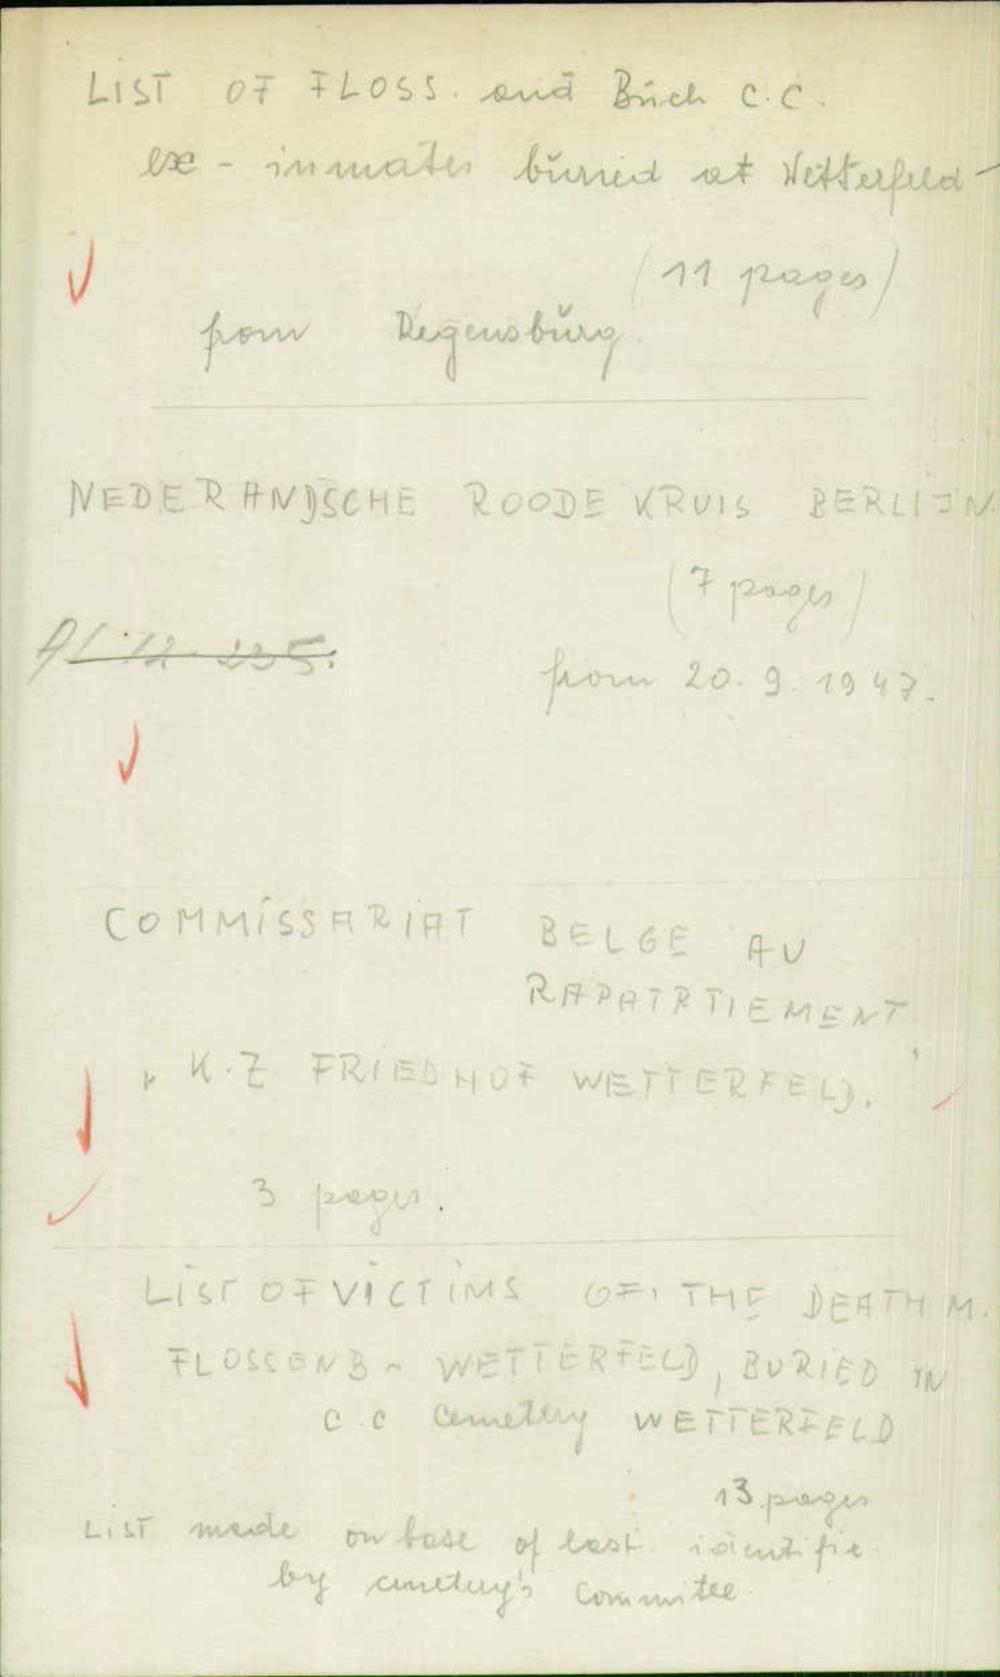 LIST OF FLOSS. and Büch C.C.
ex - inmates buried at Wetterfeld -
(11 pages)
from Regensbŭrg.
NEDERANDSCHE ROODE KRUIS BERLIJN.
(7 pages)
from 20. 9. 1947.
COMMISSARIAT BELGE AU
RAPATRTIEMENT,
K.Z. FRIEDHOF WETTERFELD.
3 pages.
LIST OF VICTIMS OF THE DEATH M.
FLOSSENB - WETTERFELD, BURIED IN
C.C Cemetery WETTERFELD
13 pages
LIST made on base of last identifie
by cemetery's Committee